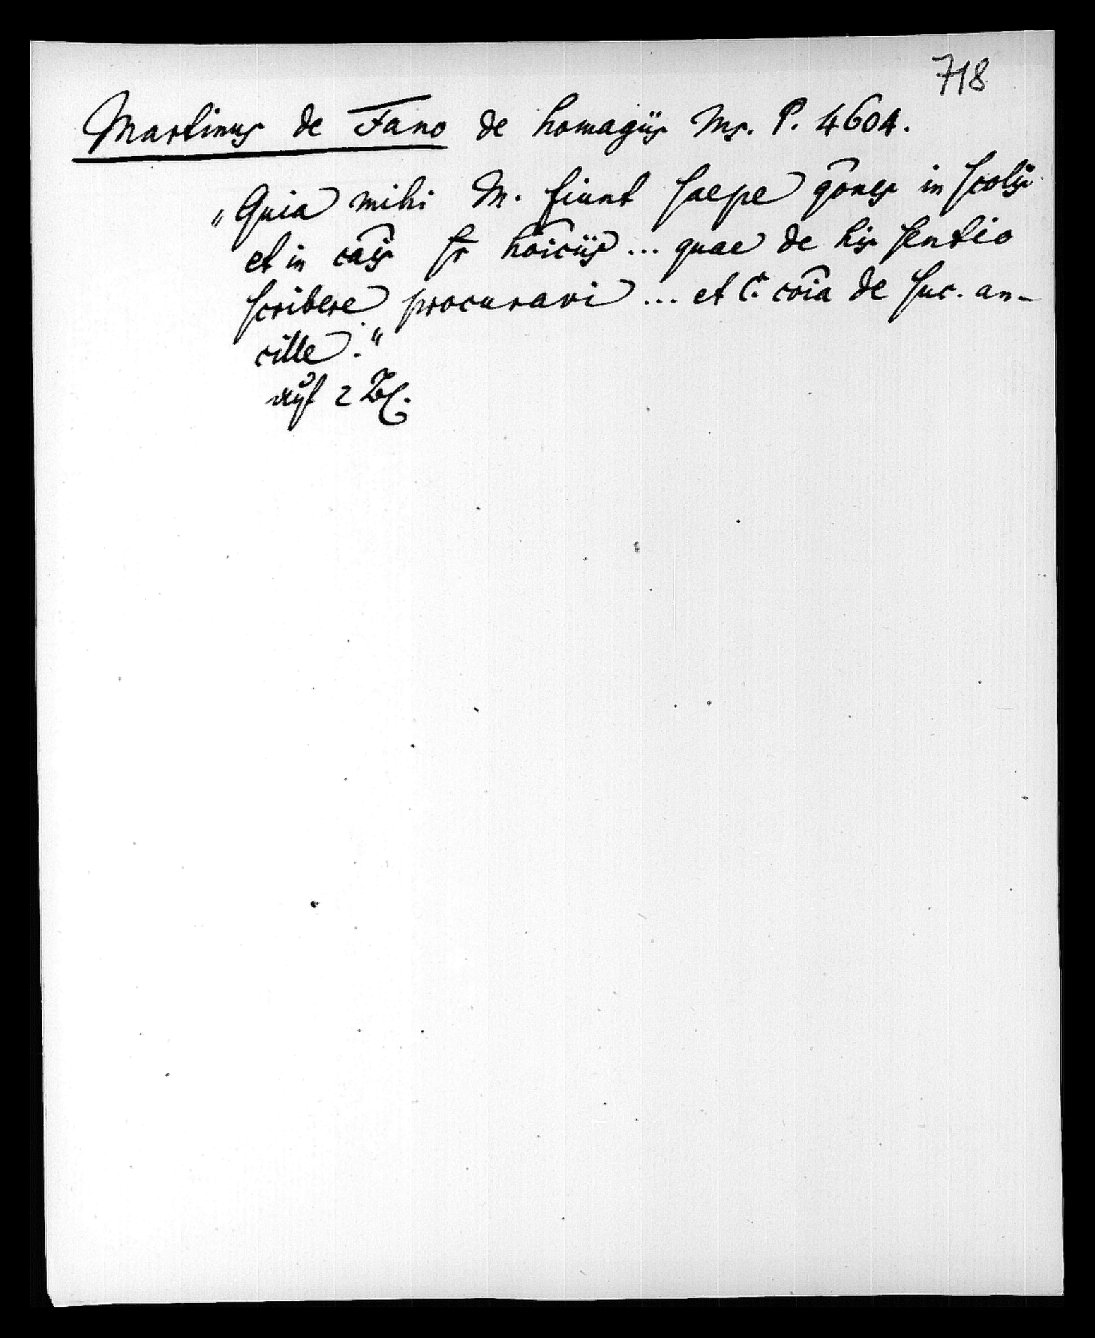 718
Martinus de Fano de homagiis Ms. P. 4604.
„Quia mihi M. fiunt saepe qōnes in scolis
et in cāis sr hōiciis ... quae de his sentio
scribere procuravi ... et C. cōia de suc. an-
cille."
auf 2 Bl.